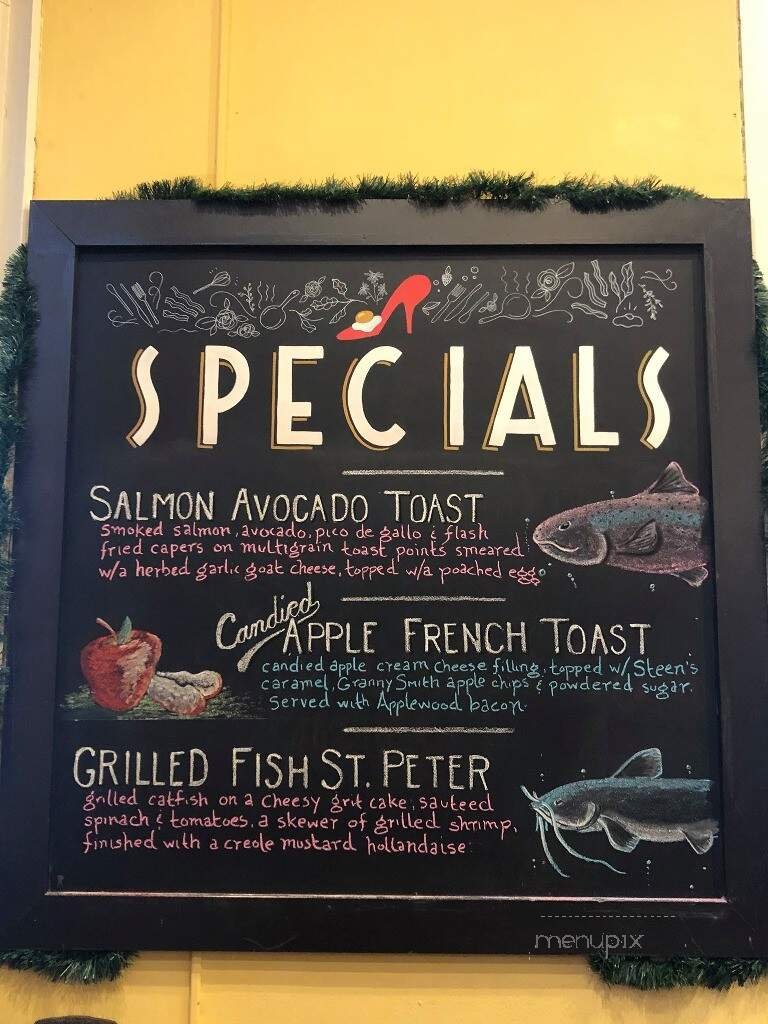 SPECIALS
SALMON AVOCADO TOAST
smoked salmon, avocado, pico de gallo & flash
fried capers on multigrain toast points smeared
w/a herbed garlic goat cheese, topped w/a poached egg.
Candied
APPLE FRENCH TOAST
candied apple cream cheese filling, topped w/ Steen's
caramel, Granny Smith apple chips & powdered sugar.
Served with Applewood bacon.
GRILLED FISH ST. PETER
grilled catfish on a cheesy grit cake, sauteed
spinach & tomatoes, a skewer of grilled shrimp,
finished with a creole mustard hollandaise.
menupix